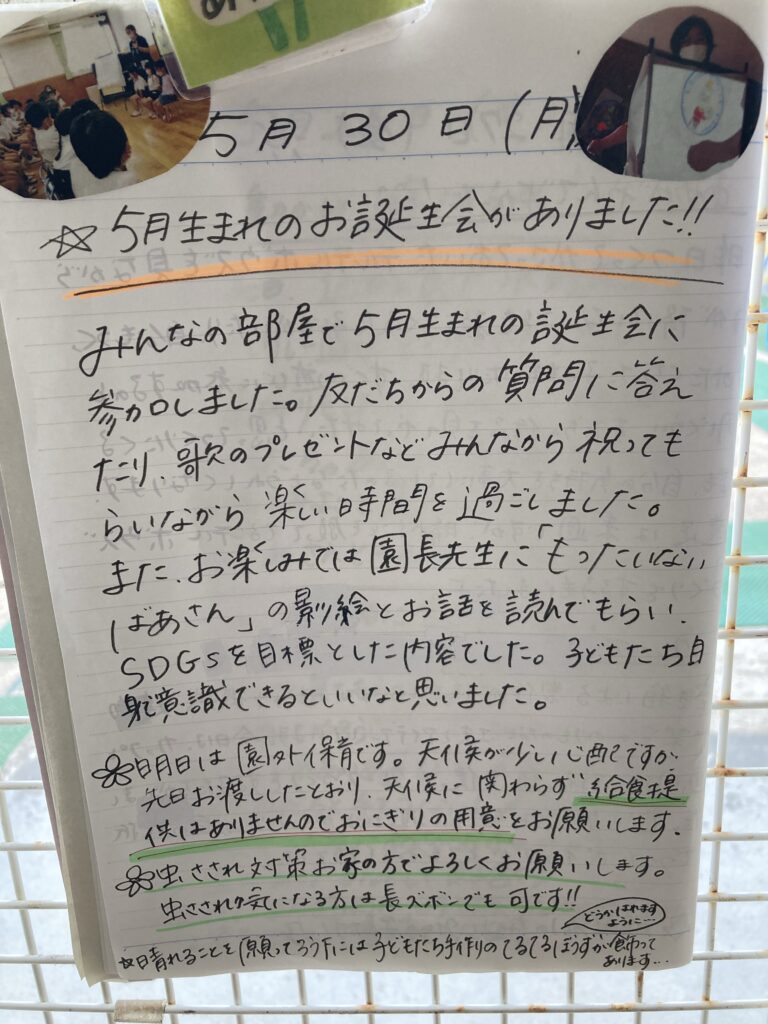 5月30日(月)
☆5月生まれのお誕生会がありました!!
みんなの部屋で5月生まれの誕生会に
参加しました。友だちからの質問に答え
たり、歌のプレゼントなどみんなから祝っても
らいながら楽しい時間を過ごしました。
また、お楽しみでは園長先生に「もったいない
ばあさん」の影絵とお話を読んでもらい、
SDGsを目標とした内容でした。子どもたち自
身で意識できるといいなと思いました。
明日は園外保育です。天候が少し心配ですが
先日お渡ししたとおり、天候に関わらず給食提
供はありませんのでおにぎりの用意をお願いします。
虫さされ対策お家の方でよろしくお願いします。
虫さされ気になる方は長ズボンでも可です!!
どうかはれます
ように…
☆晴れることを願ってろう下には子どもたち手作りのてるてるぼうずが飾って
あります…